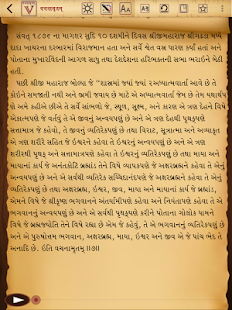 વચનામૃતમ્
સંવત્ ૧૮૭૬ ના માગશર સુદિ ૧૦ દશમીને દિવસ શ્રીજીમહારાજ શ્રીગઢડા મધ્યે
દાદા ખાચરના દરબારમાં વિરાજમાન હતા અને સર્વે શ્વેત વસ્ત્ર ધારણ કર્યાં હતાં અને
પોતાના મુખારવિંદની આગળ સાધુ તથા દેશદેશના હરિભક્તની સભા ભરાઈને બેઠી
હતી.
પછી શ્રીજી મહારાજ બોલ્યા જે "શાસ્ત્રમાં જ્યાં જ્યાં અધ્યાત્મવાર્તા આવે છે તે
કોઈને સમજાતી નથી અને ભ્રમી જવાય છે માટે એ અધ્યાત્મવાર્તા જેમ છે તેમ યથાર્થ
અમે કહીએ છીએ તે સર્વે સાંભળો જે, સ્થૂળ, સૂક્ષ્મ, અને કારણ એ ત્રણ દેહને વિષે
એકાત્મપણે જે વર્તવું તે એ જીવનું અન્વયપણું છે અને એ ત્રણ દેહથી પૃથક્
સત્તામાત્રપણે કહેવો તે જીવનું વ્યતિરેકપણું છે તથા વિરાટ, સૂત્રાત્મા અને અવ્યાકૃત
એ ત્રણ શરીરે સહિત જે ઈશ્વરને કહેવા તે ઈશ્વરનું અન્વયપણું છે અને એ ત્રણ
શરીરથી પૃથક્ અને સત્તામાત્ર કહેવા તે ઈશ્વરનું વ્યતિરેકપણું છે તથા માયા અને
માયાનાં કાર્ય જે અનંતકોટિ બ્રહ્માંડો તેને વિષે વ્યાપકપણે જે અક્ષરબ્રહ્મને કહેવા તે એનું
અન્વયપણું છે અને એ સર્વથી વ્યતિરેક સચ્ચિદાનંદપણે જે અક્ષરબ્રહ્મને કહેવા તે એનું
વ્યતિરેકપણું છે તથા અક્ષરબ્રહ્મ, ઈશ્વર, જીવ, માયા અને માયાનાં કાર્ય જે બ્રહ્માંડ,
એમને વિષે જે શ્રીકૃષ્ણ ભગવાનને અંતર્યામીપણે કહેવા અને નિયંતાપણે કહેવા તે એ
ભગવાનનું અન્વયપણું છે અને એ સર્વથી પૃથક્પણે કરીને પોતાના ગોલોક ધામને
વિષે જે બ્રહ્મજ્યોતિ તેને વિષે રહ્યા છે એમ જે કહેવું, તે એ ભગવાનનું વ્યતિરેકપણું છે
અને એ પુરુષોત્તમ ભગવાન, અક્ષરબ્રહ્મ, માયા, ઈશ્વર અને જીવ એ જે પાંચ ભેદ તે
અનાદિ છે. ઇતિ વચનામૃતમ્ ||૭||